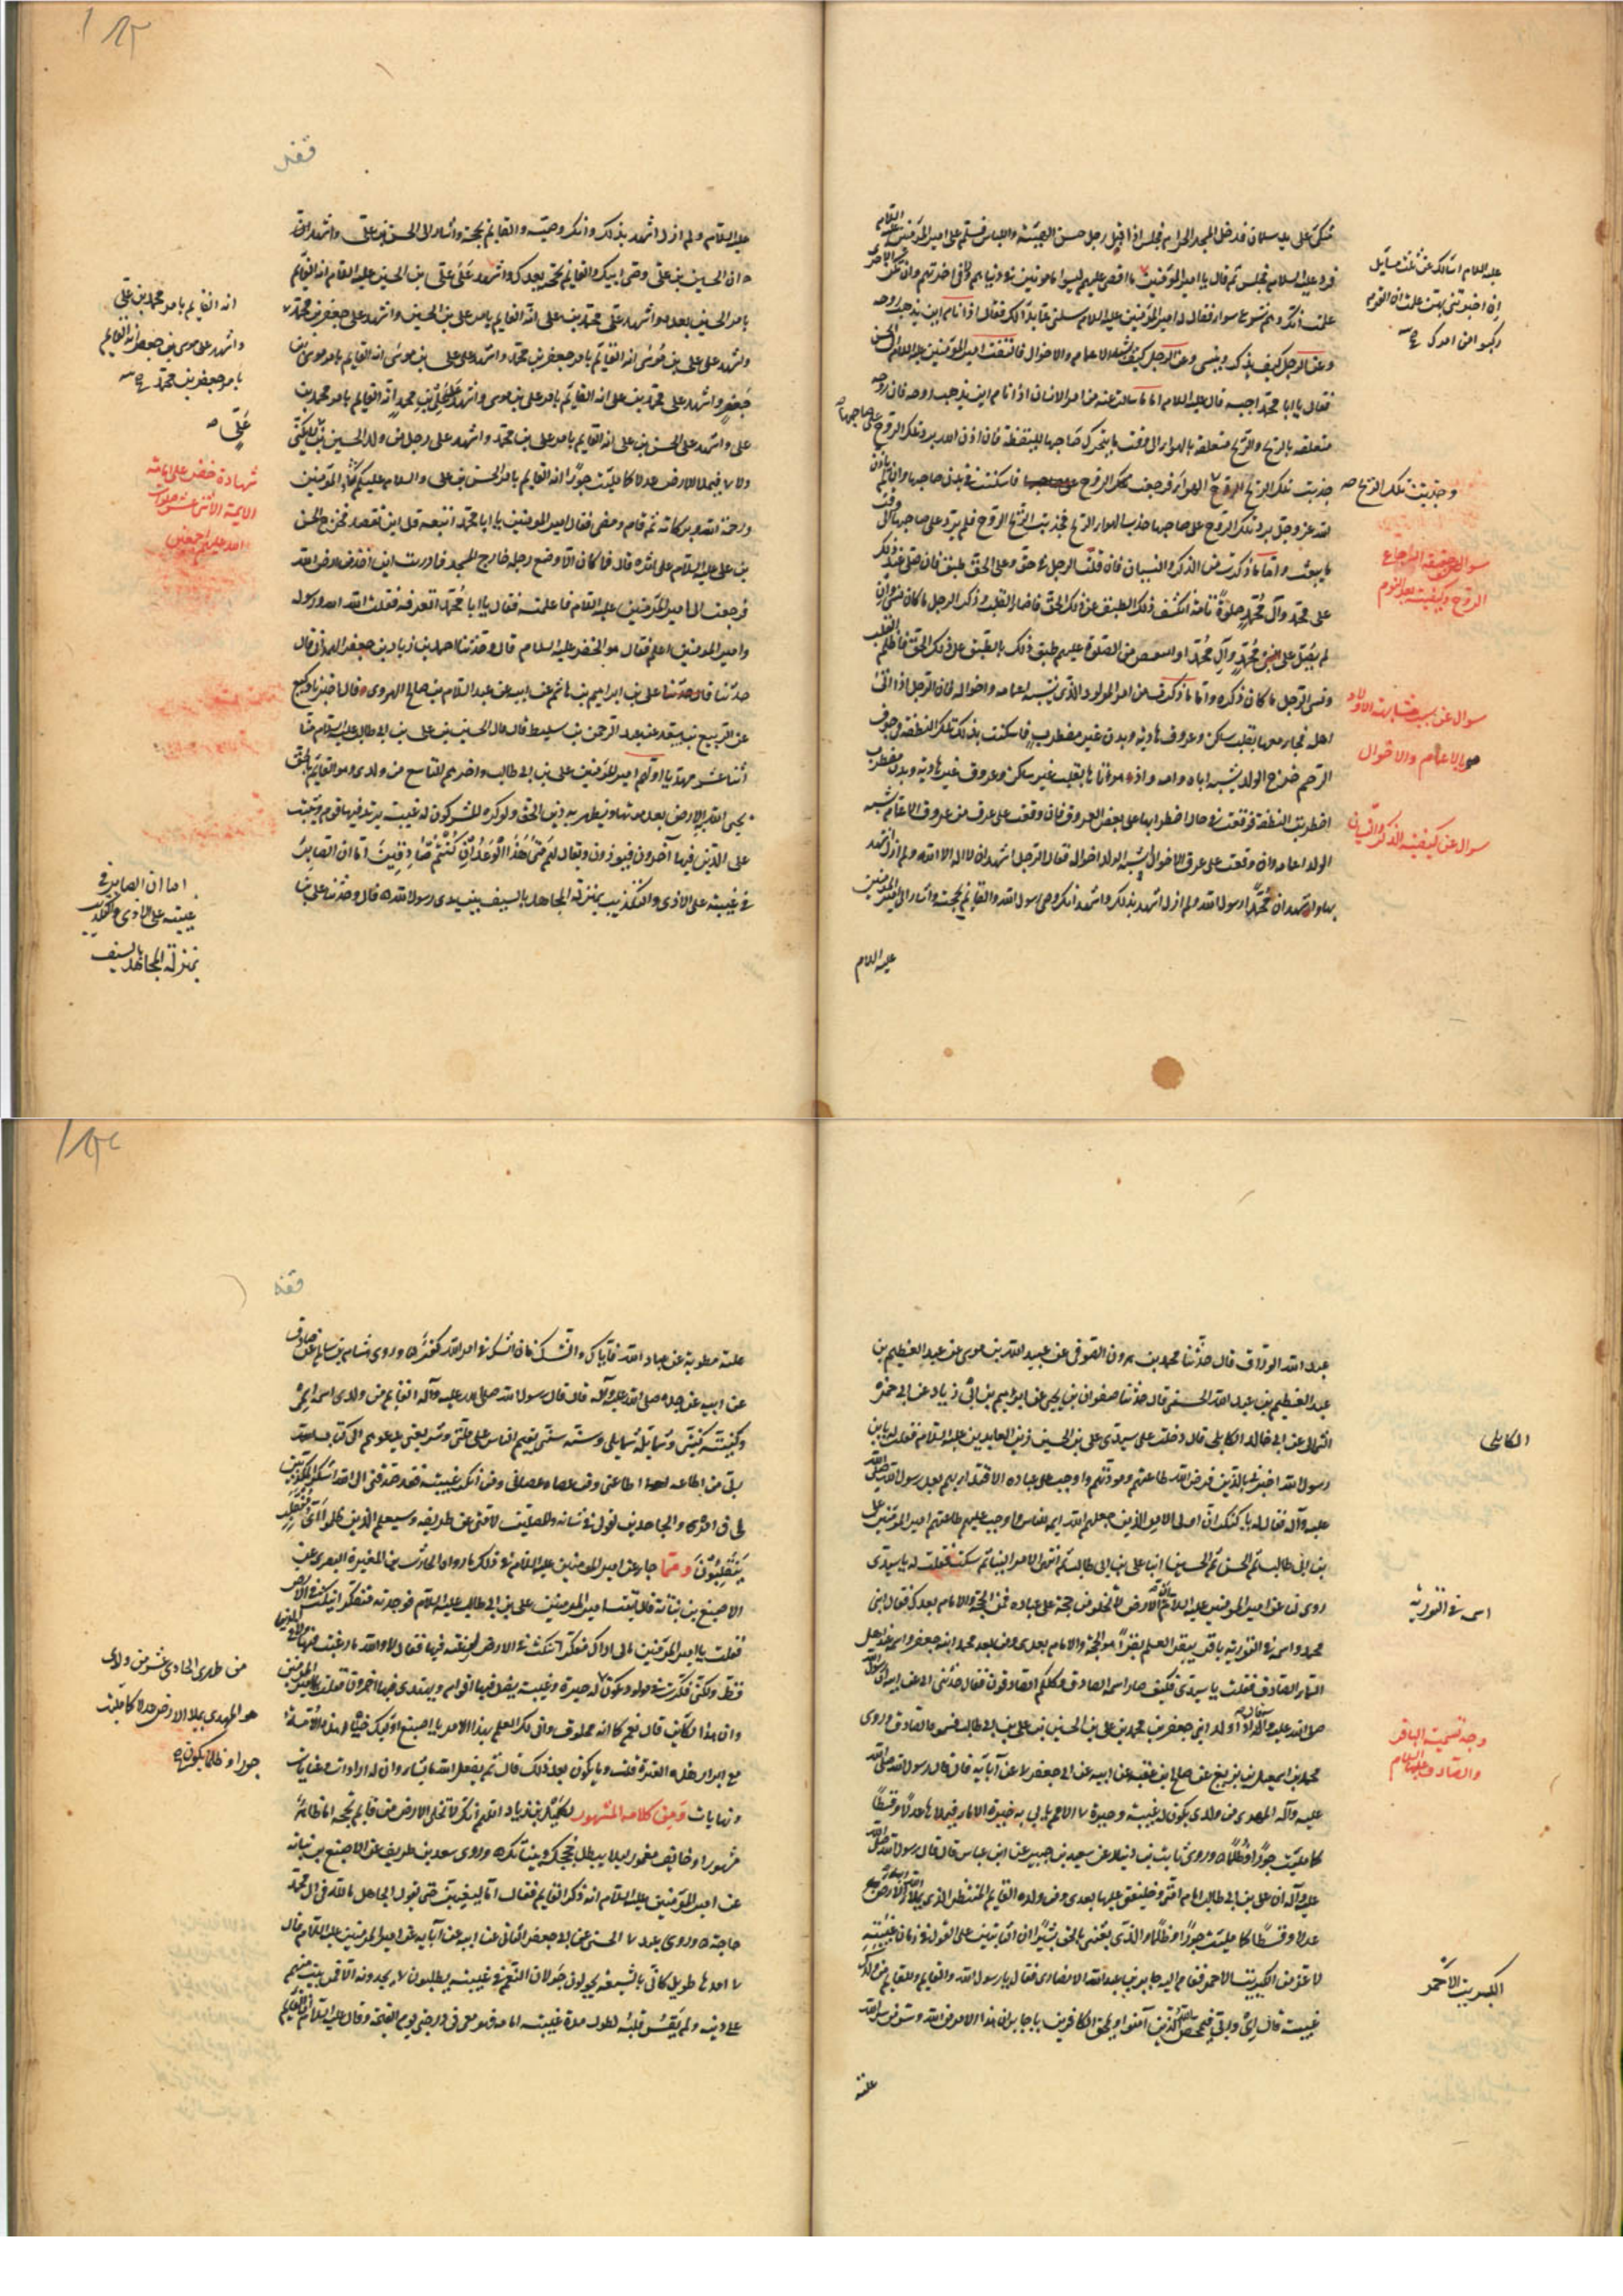 متكئ على يد سلمان فدخل المسجد الحرام فجلس اذا اقبل رجل حسن الهيئة واللباس فسلم على امير المؤمنين عليه السلام
فرد عليه السلام فجلس ثم قال يا امير المؤمنين
علمت انك وهم شرع سواء فقال له امير المؤمنين عليه السلام سلني عما بدا لك فقال اذا نام اين يذهب روحه
وعن الرجل كيف يذكر وينسى وعن الرجل كيف يشبه الاعمام والاخوال فالتفت امير المؤمنين عليه السلام الى الحسن
فقال يا ابا محمد اجبه قال عليه السلام اما ما سالت عنه من امر الانسان اذا نام اين يذهب روحه فان روحه
متعلقة بالريح والريح متعلقة بالهواء الى وقت ما يتحرك صاحبها لليقظة فان اذن الله برد تلك الروح على صاحبها
جذبت تلك الريح الروح
الله عز وجل برد تلك الروح على صاحبها جذب الهواء الريح فجذبت الريح الروح فلم يرد على صاحبها الى وقت
ما يبعث واما ما ذكرت من الذكر والنسيان فان قلب الرجل في حق وعلى الحق طبق فان صلى عند ذلك
على محمد وآل محمد صلوة تامة انكشف ذلك الطبق عن ذلك الحق فاضاء القلب وذكر الرجل ما كان نسي وان
لم يصل على محمد وآل محمد او انتقص من الصلوة عليهم طبق ذلك الطبق على ذلك الحق فاظلم القلب
ونسى الرجل ما كان ذكره واما ما ذكرت من امر المولود الذى يشبه اعمامه واخواله فان الرجل اذا اتى
اهله فجامعها بقلب ساكن وعروق هادية وبدن غير مضطرب فاسكنت بذلك تلك النطفة فى جوف
الرحم خرج الولد يشبه اباه وامه واذا هو اتاها بقلب غير ساكن وعروق غير هادية وبدن مضطرب
اضطربت النطفة فوقعت فى حال اضطرابها على بعض العروق فان وقعت على عرق من عروق الاعمام شبه
الولد اعمامه وان وقعت على عرق الاخوال شبه الولد اخواله فقال الرجل اشهد ان لا اله الا الله ولم ازل اشهد
بها واشهد ان محمدا رسول الله ولم ازل اشهد بذلك واشهد انك وصى رسول الله والقايم بحجته واشار الى امير المؤمنين
عليه السلام
عليه السلام اسالك عن ثلث مسايل
ان اخبرتنى بهن علمت ان القوم
ركبوا من امرك
وجذبت تلك الريح
سوال عن حقيقة ارجاع
الروح وكيفيته بعد النوم
سوال عن سبب مشابهة الاولاد
الاعمام والاخوال
سوال عن كيفية الذكر والنسيان
عليه السلام ولم ازل اشهد بذلك وانك وصيه والقايم بحجته واشار الى الحسن بن على واشهد ان
ان الحسين بن على وصى ابيك والقايم بحجته بعدك واشهد على على بن الحسين عليه السلام انه القايم
بامر الحسين بعده واشهد على محمد بن على انه القايم بامر على بن الحسين واشهد على جعفر بن محمد
واشهد على على بن موسى انه القايم بامر جعفر بن محمد واشهد على على بن موسى انه القايم بامر موسى بن
جعفر واشهد على محمد بن على انه القايم بامر على بن موسى واشهد على على بن محمد انه القايم بامر محمد بن
على واشهد على الحسن بن على انه القايم بامر على بن محمد واشهد على رجل من ولد الحسين بن على لا يكنى
ولا فيملا الارض عدلا كما ملئت جورا انه القايم بامر الحسن بن على والسلام عليك يا امير المؤمنين
ورحمة الله وبركاته ثم قام ومضى فقال امير المؤمنين يا ابا محمد اتبعه فانظر اين تقصد فخرج الحسن
بن على عليه السلام على اثره قال فما كان الا وضع رجله خارج المسجد فما دريت اين اخذ من ارض الله
فرجعت الى امير المؤمنين عليه السلام فاعلمته فقال يا ابا محمد اتعرفه فقلت الله ورسوله
وامير المؤمنين اعلم فقال هو الخضر عليه السلام قال وحدثنا احمد بن زياد بن جعفر الهمدانى قال
حدثنا على بن ابراهيم بن هاشم عن ابيه عن عبد السلام بن صالح الهروى قال اخبرنا وكيع
عن الربيع بن سعد عن عبد الرحمن بن سليط قال قال الحسين بن على بن ابى طالب عليه السلام منا
اثنا عشر مهديا اولهم امير المؤمنين على بن ابى طالب واخرهم التاسع من ولدى وهو القايم بالحق
يحيى الله به الارض بعد موتها ويظهر به دين الحق ولو كره المشركون له غيبة يرتد فيها قوم ويثبت
على الدين فيها آخرون فيوذون ويقال لهم متى هذا الوعد ان كنتم صادقين اما ان الصابر
فى غيبته على الاذى والتكذيب بمنزلة المجاهد بالسيف بين يدى رسول الله قال وحدثنا على بن
انه القايم بامر محمد بن على
واشهد على موسى بن جعفر انه القايم
بامر جعفر بن محمد
على
شهادة خضر على امامة
الايمة الاثنى عشر صلوات
الله عليهم اجمعين
اما ان الصابر فى
غيبته على الاذى والتكذيب
بمنزلة المجاهد بالسيف
عبد الله الوراق قال حدثنا محمد بن هرون الصوفى عن عبيد الله بن موسى عن عبد العظيم بن
عبد العظيم بن عبد الله الحسنى قال حدثنا صفوان بن يحيى عن ابراهيم بن ابى زياد عن ابى حمزة
الثمالى عن ابى خالد الكابلى قال دخلت على سيدى على بن الحسين زين العابدين عليه السلام فقلت له يا بن
رسول الله اخبرنى بالذين فرض الله طاعتهم ومودتهم واوجب على عباده الاقتداء بهم بعد رسول الله صلى الله
عليه وآله فقال له يا كنكر ان اولى الامر الذين جعلهم الله ايمة للناس واوجب عليهم طاعتهم امير المؤمنين على
بن ابى طالب ثم الحسن ثم الحسين ابنا على بن ابى طالب ثم انتهى الامر الينا ثم سكت فقلت له يا سيدى
روى لنا عن امير المؤمنين عليه السلام ان الارض لا تخلو من حجة على عباده فمن الحجة والامام بعدك فقال ابنى
محمد واسمه فى التورية باقر يبقر العلم بقرا هو الحجة والامام بعدى ومن بعد محمد ابنه جعفر واسمه عند اهل
السماء الصادق فقلت يا سيدى فكيف صار اسمه الصادق وكلكم الصادقون فقال حدثنى ابى عن ابيه ان رسول الله
صلى الله عليه وآله قال اذا ولد ابنى جعفر بن محمد بن على بن الحسين بن على بن ابى طالب فسموه الصادق وروى
محمد بن اسمعيل بن بزيع عن صالح بن عقبة عن ابيه عن ابى جعفر عن آبايه قال قال رسول الله صلى الله
عليه وآله المهدى من ولدى يكون له غيبة وحيرة
كما ملئت جورا وظلما وروى ثابت بن دينار عن سعيد بن جبير عن ابن عباس قال قال رسول الله صلى الله
عليه وآله ان على بن ابى طالب امام امتى وخليفتى عليها بعدى ومن ولده القايم المنتظر الذى يملا الارض
عدلا وقسطا كما ملئت جورا وظلما والذى بعثنى بالحق بشيرا ان الثابتين على القول فى زمان غيبته
لاعز من الكبريت الاحمر فقام اليه جابر بن عبد الله الانصارى فقال يا رسول الله وللقايم من ولدك
غيبة قال اى وربى ليمحص الله الذين آمنوا ويمحق الكافرين يا جابر ان هذا الامر من الله وسر من سر الله
علته
الكابلى
اسمه فى التورية
وجه تسمية الباقر
والصادق عليهما السلام
الكبريت الاحمر
علته مطوية عن عباد الله فاياك والشك فان الشك فى امر الله كفر وروى هشام بن سالم عن صادق
عن ابيه عن جده صلى الله عليه وآله قال قال رسول الله صلى الله عليه وآله القايم من ولدى اسمه اسمى
وكنيته كنيتى وشمايله شمايلى وسنته سنتى يقيم الناس على ملتى وشريعتى يدعوهم الى كتاب الله
ربى من اطاعه اطاعنى ومن عصاه عصانى ومن انكر غيبته فقد انكرنى الى الله اشكو المكذبين
لى فى امره والجاحدين لقولى فى شانه والمضلين لامتى عن طريقه وسيعلم الذين ظلموا اى منقلب
ينقلبون ومما جاء عن امير المؤمنين عليه السلام فى ذلك ما رواه الحارث بن المغيرة النصرى عن
الاصبغ بن نباتة قال اتيت امير المؤمنين على بن ابى طالب عليه السلام فوجدته متفكرا ينكت فى الارض
فقلت يا امير المؤمنين مالى اراك متفكرا تنكت فى الارض ارغبة فيها فقال لا والله ما رغبت فيها
قط ولكنى فكرت فى مولود يكون له حيرة وغيبة يضل فيها اقوام ويهتدى فيها اخرون فقلت يا امير المؤمنين
وان هذا لكاين قال نعم كما انه مخلوق وانى لك العلم بهذا الامر يا اصبغ اوليك خيار هذه الامة
مع ابرار هذه العترة قلت وما يكون بعد ذلك قال ثم يفعل الله ما يشاء وان له ارادات وغايات
ونهايات ومن كلامه المشهور لكميل بن زياد اللهم انك لا تخلى الارض من قايم بحجة اما ظاهرا
مشهورا او خايف مغمور ليلا يبطل حججك وبيناتك وروى سعد بن طريف عن الاصبغ بن نباته
عن امير المؤمنين عليه السلام انه ذكر القايم فقال اما ليغيبن حتى يقول الجاهل ما لله فى آل محمد
حاجة وروى عبد الحسنى عن ابى جعفر الثانى عن ابيه عن آبايه عن امير المؤمنين عليه السلام قال
امدها طويل كانى بالشيعة يجولون جولان النعم فى غيبته يطلبون يجدونه الا فمن ثبت منهم
على دينه ولم يقس قلبه لطول مدة غيبة امامه فهو معى فى درجتى يوم القيمة وقال عليه السلام ان القايم
من ظهرى الحادى عشر من ولدى
هو المهدى يملا الارض عدلا كما ملئت
جورا وظلما يكون